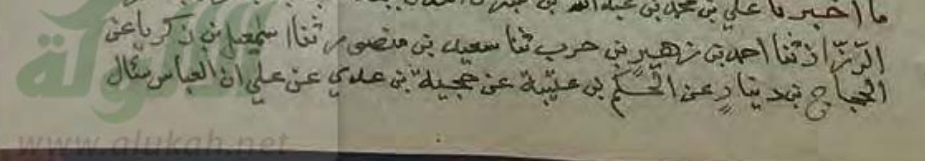 ما اخبرنا علي بن محمد بن عبد الله بن
الرزاز ثنا احمد بن زهير بن حرب ثنا سعيد بن منصور ثنا اسمعيل بن زكريا عن
الحجاج بن دينار عن الحكم بن عتيبة عن حجية بن عدي عن علي ان العباس سئال
الألوكة
www.alukah.net